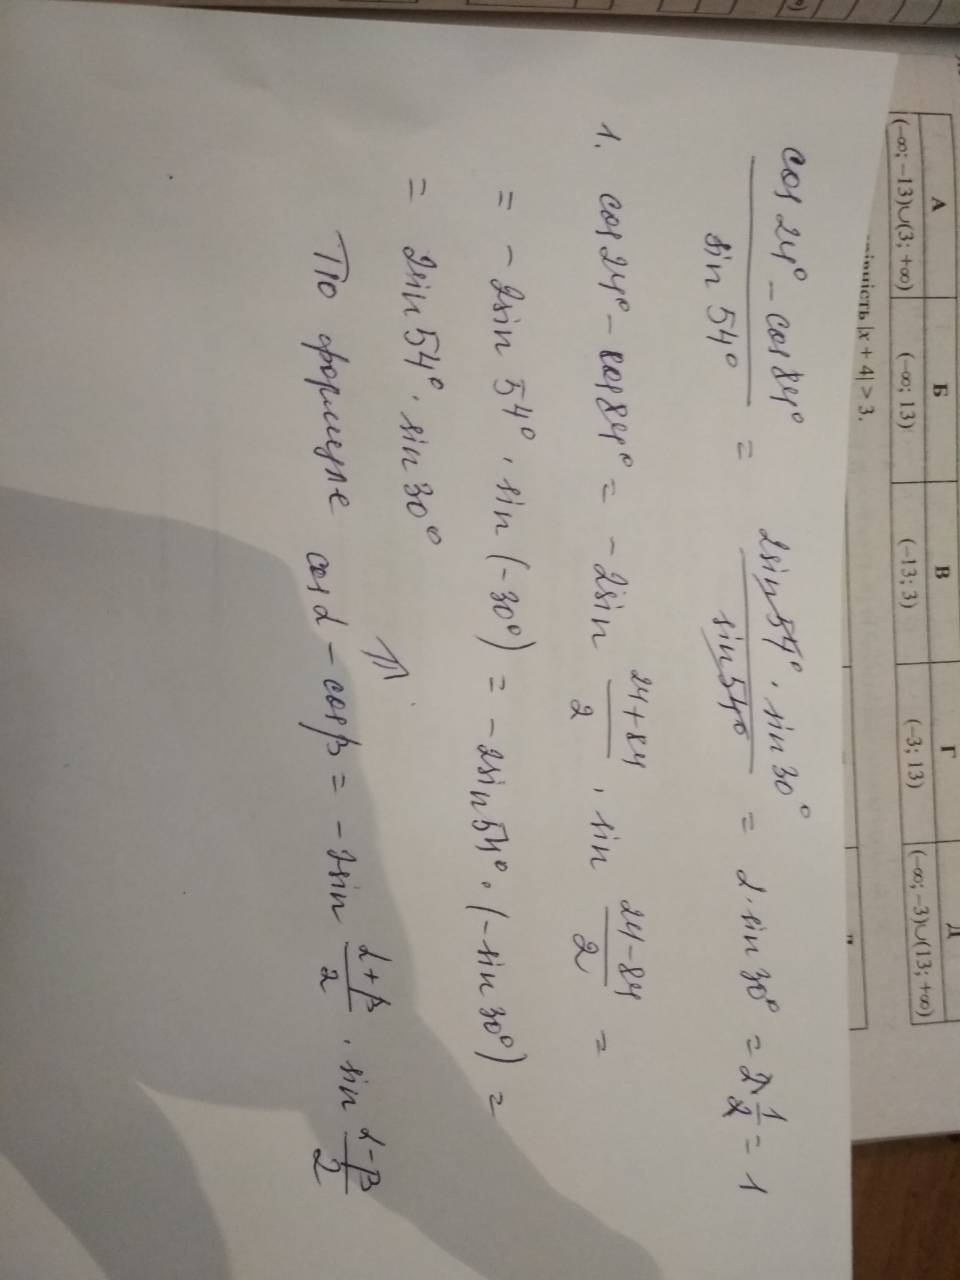 А Б В Г Д
(−∞; −13)∪(3; +∞) (−∞; 13) (−13; 3) (−3; 13) (−∞; −3)∪(13; +∞)
|x + 4| > 3.
cos 24° − cos 84° / sin 54° = 2sin 54° · sin 30° / sin 54° = 2 · sin 30° = 2 · 1/2 = 1
1. cos 24° − cos 84° = − 2sin 24+84/2 · sin 24−84/2 =
= − 2sin 54° · sin (−30°) = − 2sin 54° · (− sin 30°) =
= 2sin 54° · sin 30°
По формуле cos α − cos β = − 2sin α+β/2 · sin α−β/2